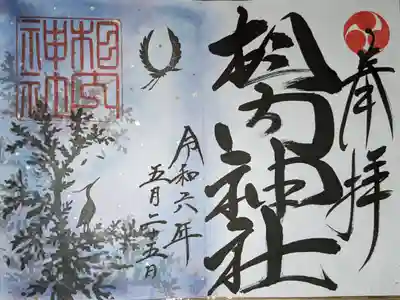 奉拝
相内神社
令和六年
五月二十五日
相内
神社